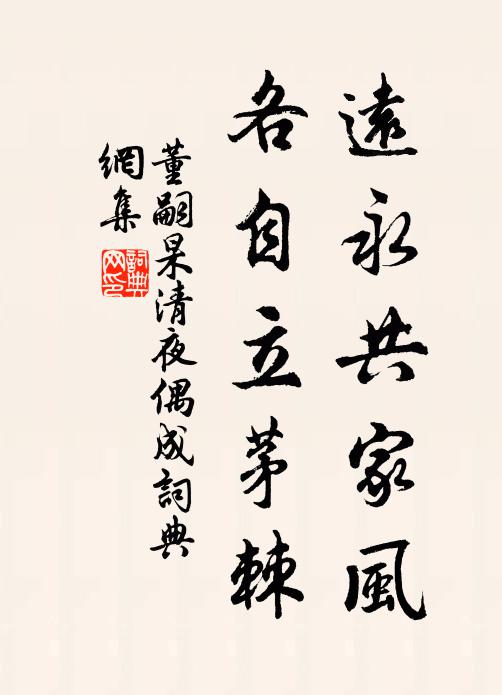 遠永共家風
各自立茅棘
董嗣杲清夜偶成詞典
網集
詞典
网印